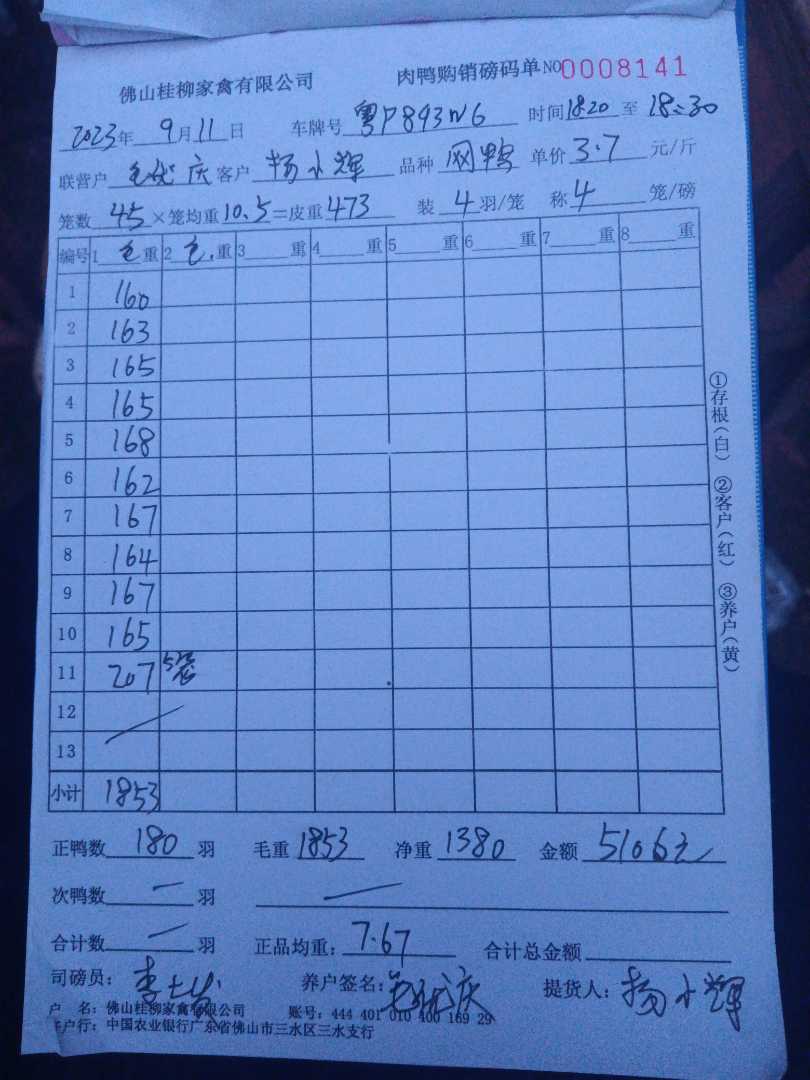 佛山桂柳家禽有限公司 肉鸭购销磅码单 NO 0008141
2023年 9月 11日 车牌号 粤P893W6 时间 18:20 至 18:30
联营户 庆 客户 杨小辉 品种 网鸭 单价 3.7 元/斤
笼数 45 ×笼均重 10.5 =皮重 473 装 4 羽/笼 称 4 笼/磅
编号 1 毛 重 2 毛 重 3 重 4 重 5 重 6 重 7 重 8 重
1 160
2 163
3 165
4 165
5 168
6 162
7 167
8 164
9 167
10 165
11 207 5笼
12
13
小计 1853
正鸭数 180 羽 毛重 1853 净重 1380 金额 5106元
次鸭数 — 羽
合计数 — 羽 正品均重: 7.67 合计总金额
司磅员: 李 养户签名: 庆 提货人: 杨小辉
户 名: 佛山桂柳家禽有限公司 账号: 444 401 010 400 169 29
开户行: 中国农业银行广东省佛山市三水区三水支行
①存根(白) ②客户(红) ③养户(黄)